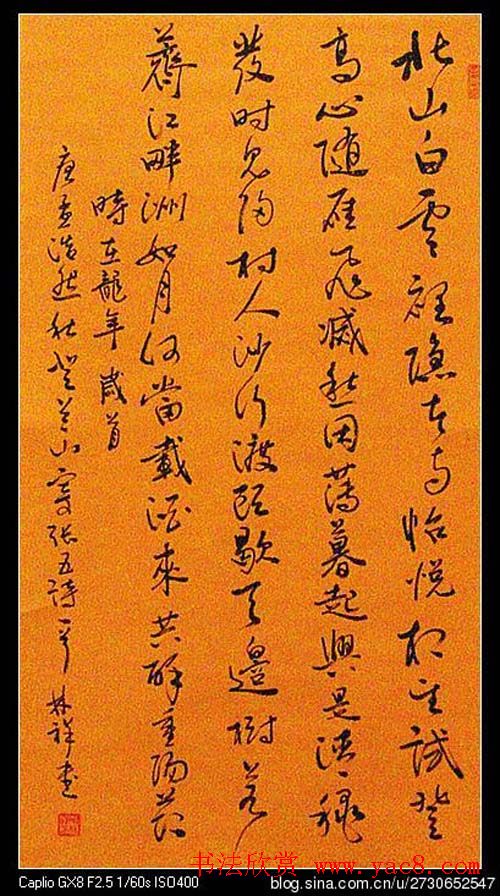 北山白雲裡隱者自怡悅相望試登
高心随雁飛滅愁因薄暮起興是清秋
發时見歸村人沙行渡頭歇天邊樹若
薺江畔洲如月何當載酒來共醉重陽節
時在龍年歲首
唐孟浩然秋登兰山寄張五詩一首 林祥書
书法欣赏 www.yac8.com
Caplio GX8 F2.5 1/60s ISO400
blog.sina.com.cn/u/2730652547